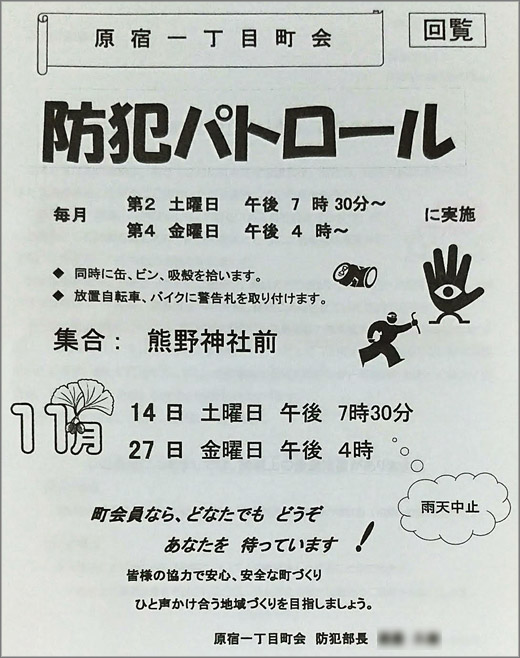 原宿一丁目町会
回覧
防犯パトロール
毎月 第2 土曜日 午後 7 時 30分～ に実施
第4 金曜日 午後 4 時～
◆ 同時に缶、ビン、吸殻を拾います。
◆ 放置自転車、バイクに警告札を取り付けます。
集合： 熊野神社前
11月 14日 土曜日 午後 7時30分
27日 金曜日 午後 4時
雨天中止
町会員なら、どなたでも どうぞ
あなたを 待っています！
皆様の協力で安心、安全な町づくり
ひと声かけ合う地域づくりを目指しましょう。
原宿一丁目町会 防犯部長